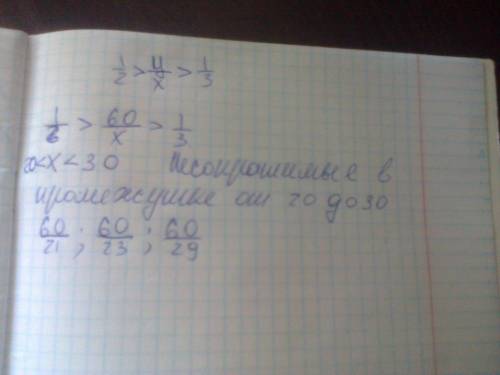 1/2 > y/x > 1/3
1/2 > 60/x > 1/3
20<x<30 Несократимые в
промежутке от 20 до 30
60/21 ; 60/23 ; 60/29